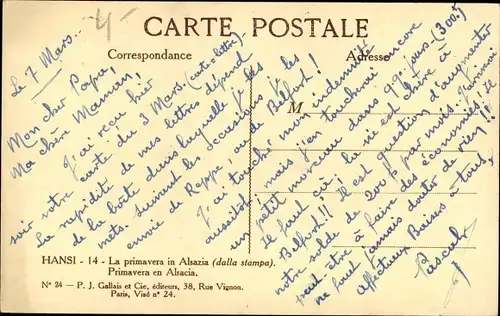 CARTE POSTALE
Correspondance
Adresse
M
Le 7 Mars.
4
Mon cher Papa,
Ma chère Maman!
J'ai reçu hier
soir votre carte du 3 Mars. (carte-lettre).
La rapidité de mes lettres dépend
de la boîte dans laquelle je les
mets. Suivant les occasions je les
envoie de Roppe, ou de Belfort!
J'ai touché mon indemnité
aussitôt, mais j'en toucherai encore
un petit morceau dans 99 jours (300f)
Il faut ça! La vie est chère à
Belfort!! Il est question d'augmenter
notre solde de 200f par mois. J'arriverai
peut être à faire des économies. Il
ne faut jamais douter de rien!!
affectueux Baisers à tous,
Pascal
HANSI - 14 - La primavera in Alsazia (dalla stampa).
Primavera en Alsacia.
N° 24 — P. J. Gallais et Cie, éditeurs, 38, Rue Vignon.
Paris, Visé n° 24.